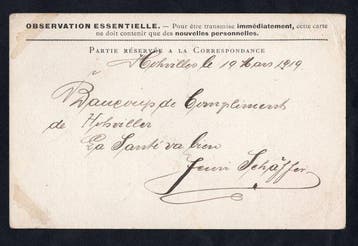 OBSERVATION ESSENTIELLE. — Pour être transmise immédiatement, cette carte
ne doit contenir que des nouvelles personnelles.
PARTIE RÉSERVÉE A LA CORRESPONDANCE
Hohviller le 19 Mars 1919
Baucoup de Compliment
de Hohviller
La Santé va bien
Schäffer